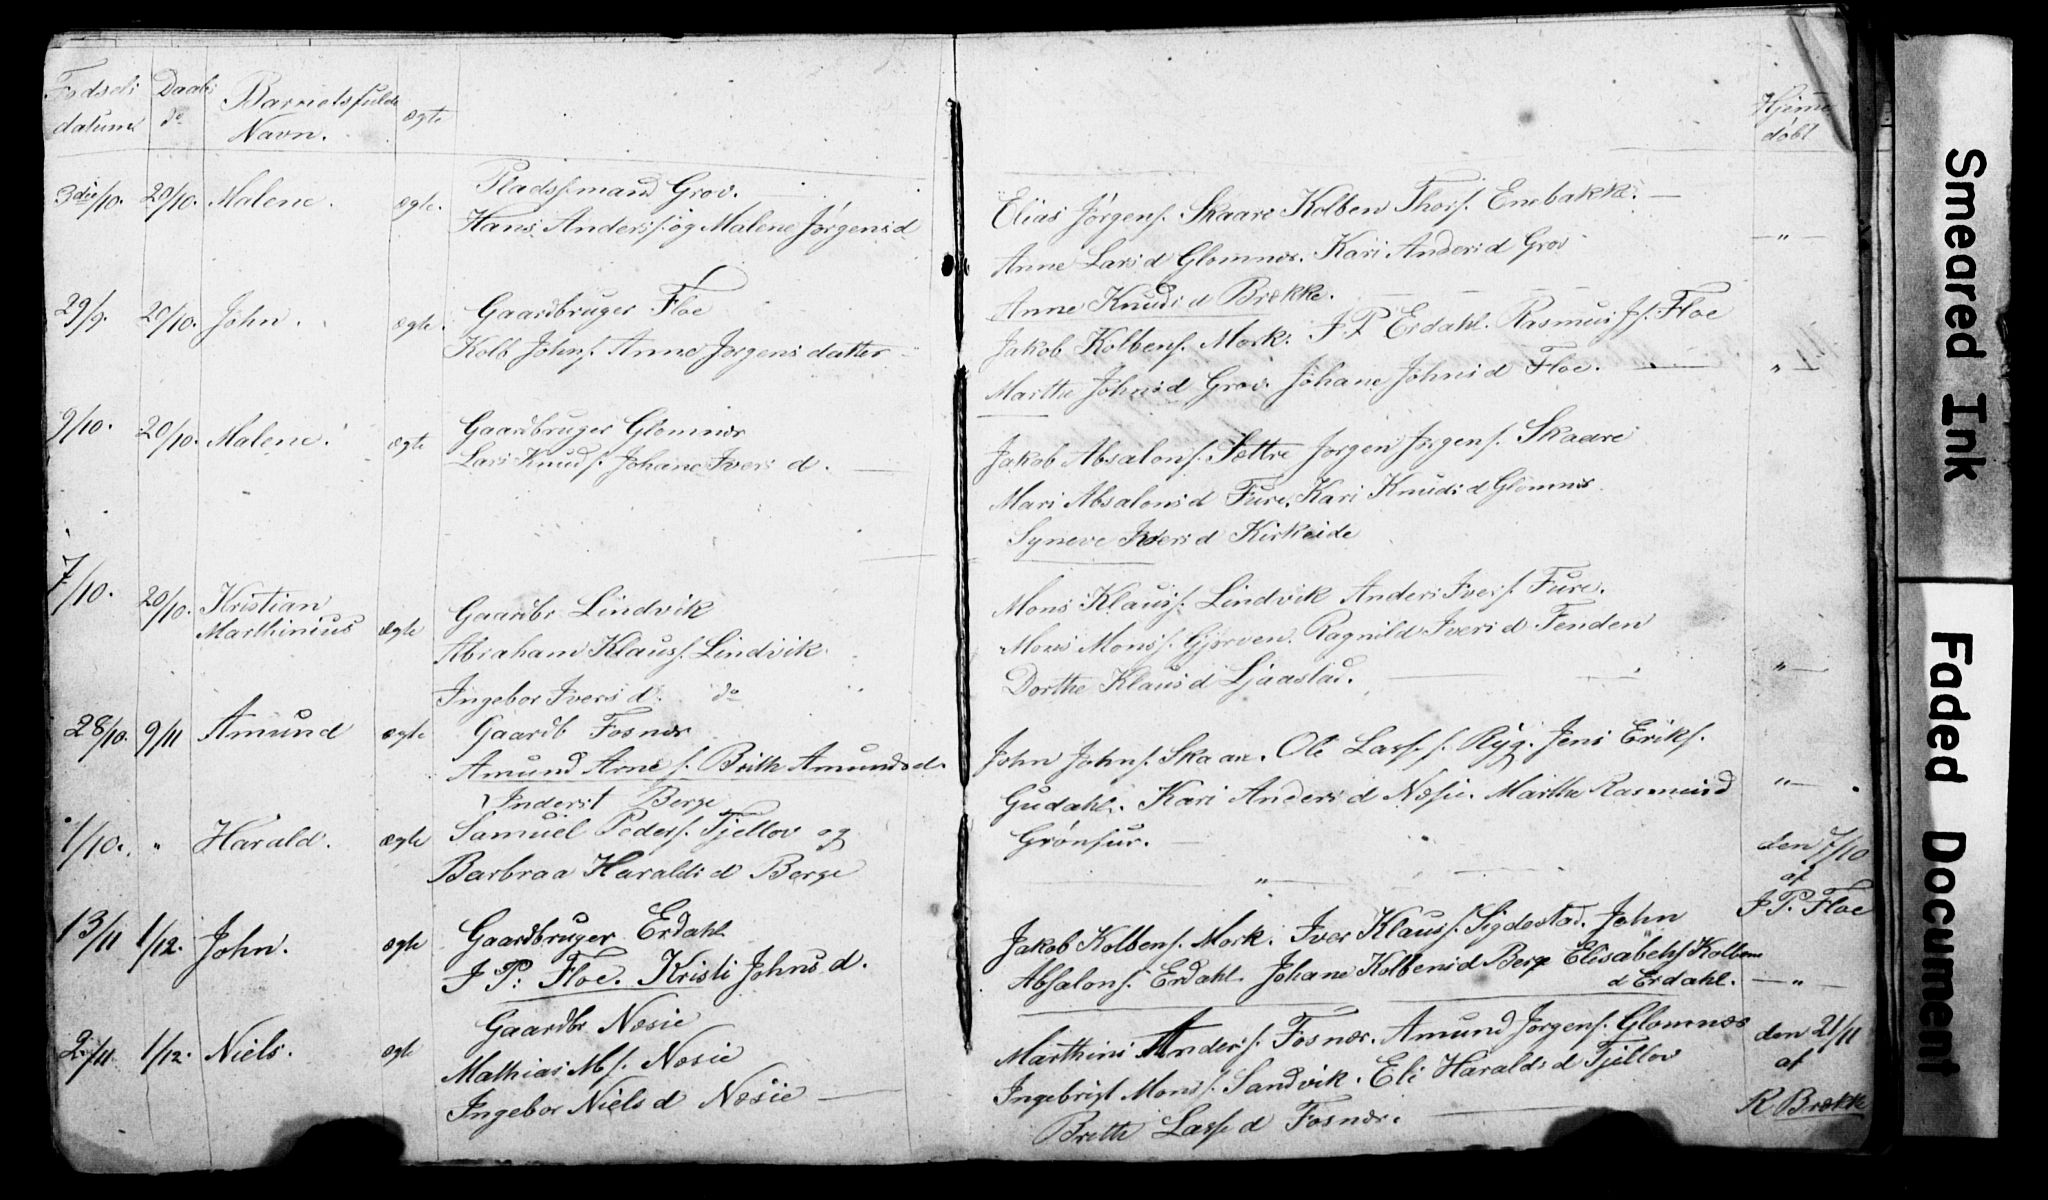 Fødsels Daabs Barnetsfulde
datum do Navn. ægte
Hjeme
døbt
3die/10. 20/10. Malene. ægte. Pladssmand Grov.
Hans Anderss. og Malene Jørgensd
Elias Jørgens. Skaare Kolben Thors. Enebakke. —
Anne Larsd Glomnes. Kari Andersd Grov — " —
Anne Knudsd Brekke.
29/9. 20/10. John. ægte. Gaardbruger Floe
Kolb Johns. Anne Jørgensdatter
Jakob Kolbens. Mork. J. P Erdahl. Rasmus Js. Floe
Marthe Johnsd Grov. Johane Johnsd Floe. — " —
9/10. 20/10. Malene. ægte Gaardbruger Glomnes
Lars Knuds. Johane Iversd. —
Jakob Absalons. Sættre Jørgen Jørgens. Skaare
Mari Absalonsd Fure. Kari Knudsd Glomnes
Syneve Iversd Kirkeide
7/10. 20/10. Kristian
Marthinius ægte Gaardbr Lindvik
Abraham Klauss. Lindvik
Ingebor Iversd. do
Mons Klauss. Lindvik Anders Ivers. Fure.
Mons Monss. Gjørven. Ragnild Iversd Tenden
Dorthe Klausd Ljaastad. — " —
28/10. 9/11 Amund ægte Gaardb Fosnes
Amund Arnes. Brith Amundsd.
John Johns. Skaare. Ole Lasses. Ryg. Jens Eriks.
Gudahl. Kari Andersd Nesie. Marthe Rasmusd " —
Grønfur. —
1/10. " Harald. ægte Inderst Berge
Samuel Peders. Tjellov og
Barbraa Haraldsd Berge
"
den 7/10
af
J P. Floe
13/11 1/12. John. ægte Gaardbruger Erdahl
J P: Floe. Kristi Johnsd.
Jakob Kolbens. Mork. Iver Klauss. Sigdestad. John
Absalons. Erdahl. Johane Kolbensd Berge Elisabeth Kolben
d Erdahl. — " —
2/11. 1/12. Niels. ægte Gaardbr Nesie
Mathias Ms. Nesie
Ingebor Nielsd Nesie —
Marthins Anders. Fosnes. Amund Jørgens. Glomnes
Ingebrigt Monss. Sandvik. Eli Haraldsd Tjellov
Brithe Lassed Fosnes. —
den 21/11
af
R Brekke
Smeared Ink
Faded Document